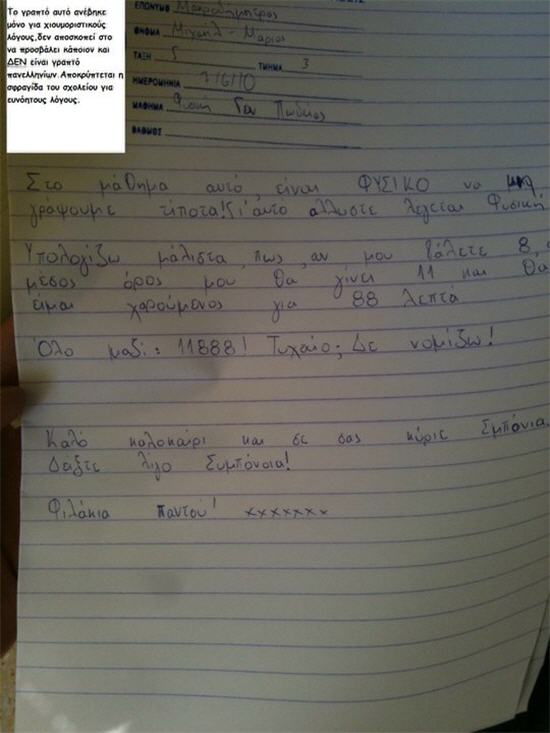 Το γραπτό αυτό ανέβηκε
μόνο για χιουμοριστικούς
λόγους,δεν αποσκοπεί στο
να προσβάλει κάποιον και
ΔΕΝ είναι γραπτό
πανελληνίων.Αποκρύπτεται η
σφραγίδα του σχολείου για
ευνόητους λόγους.
ΕΠΩΝΥΜΟ Μακροδημήτρας
ΟΝΟΜΑ Μιχαήλ - Μάριος
ΤΑΞΗ ΤΜΗΜΑ 3
ΗΜΕΡΟΜΗΝΙΑ 1/6/10
ΜΑΘΗΜΑ Φυσική Γεν Παιδείας
ΒΑΘΜΟΣ
Στο μάθημα αυτό, είναι ΦΥΣΙΚΟ να μη
γράψουμε τίποτα! Γι'αυτό άλλωστε λέγεται Φυσική
Υπολογίζω μάλιστα, πως, αν μου βάλετε 8, ο
μέσος όρος μου θα γίνει 11 και θα
είμαι χαρούμενος για 88 λεπτά
Όλο μαζί: 11888! Τυχαίο; Δε νομίζω!
Καλό καλοκαίρι και σε σας κύριε Συμπόνια.
Δείξτε λίγο Συμπόνοια!
Φιλάκια παντού! xxxxxxx